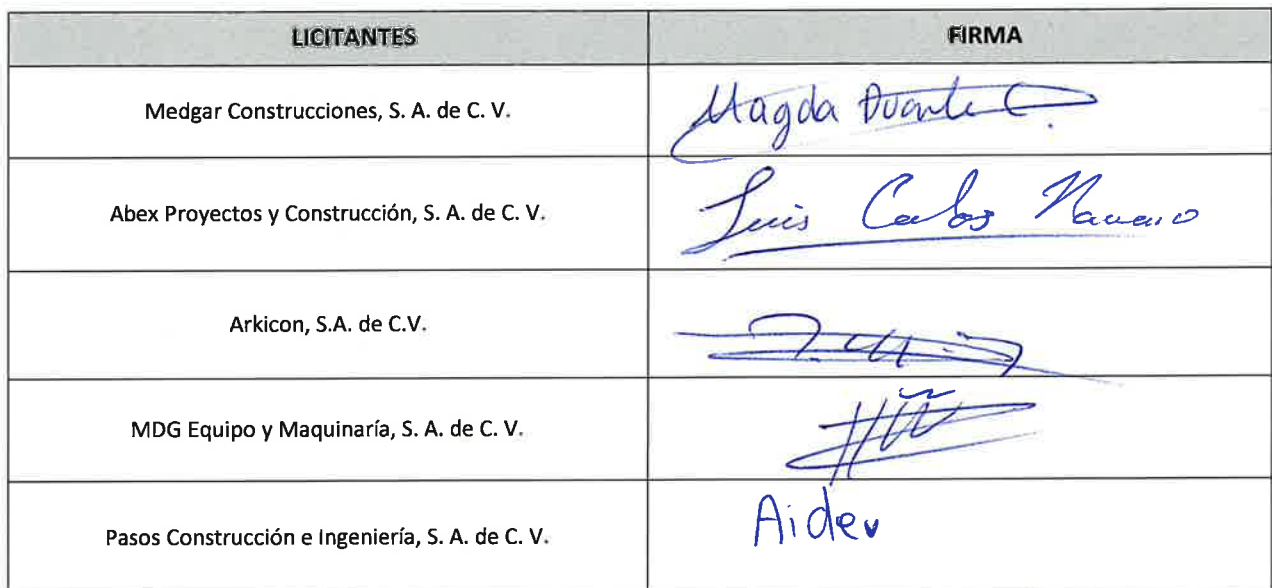 LICITANTES FIRMA
Medgar Construcciones, S. A. de C. V. Magda Duarte
Abex Proyectos y Construcción, S. A. de C. V. Luis Carlos Navarro
Arkicon, S.A. de C.V.
MDG Equipo y Maquinaría, S. A. de C. V.
Pasos Construcción e Ingeniería, S. A. de C. V. Aidev